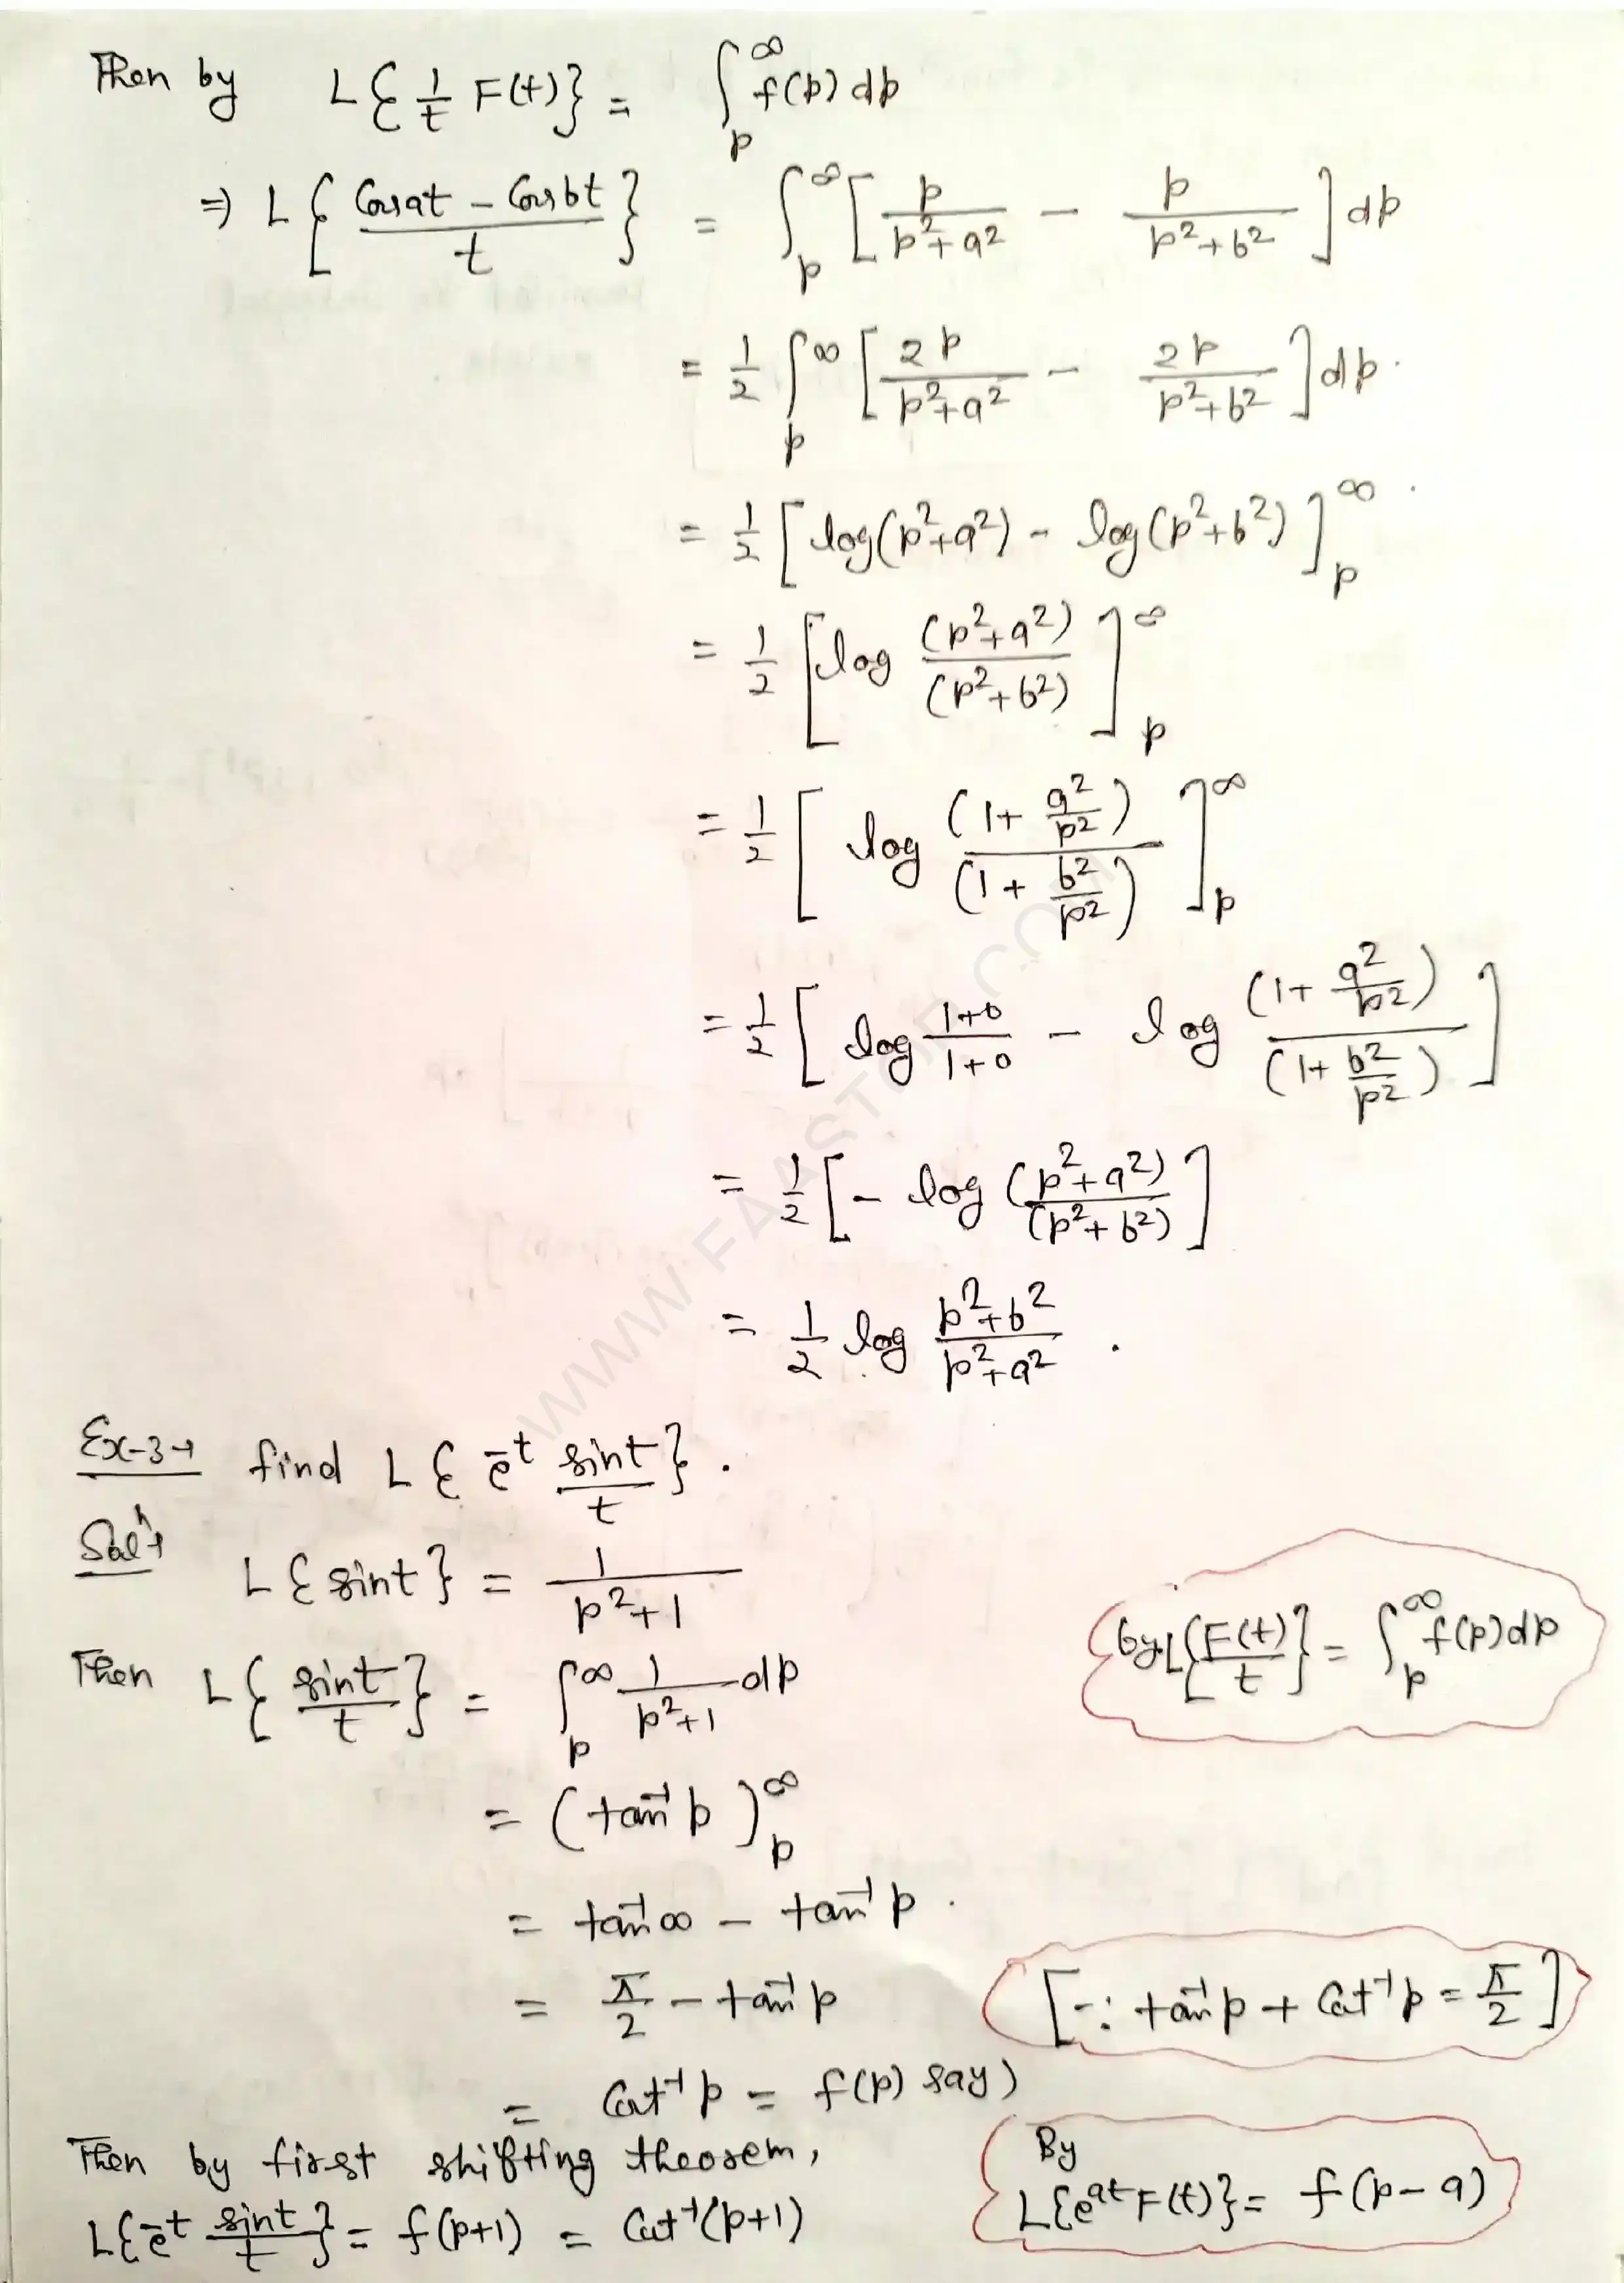 Then by L{1/t F(t)} = ∫_p^∞ f(p) dp
⇒ L{(Cosat - Cosbt)/t} = ∫_p^∞ [p/(p²+a²) - p/(p²+b²)] dp
= 1/2 ∫_p^∞ [2p/(p²+a²) - 2p/(p²+b²)] dp.
= 1/2 [log(p²+a²) - log(p²+b²)]_p^∞
= 1/2 [log (p²+a²)/(p²+b²)]_p^∞
= 1/2 [log (1+ a²/p²)/(1+ b²/p²)]_p^∞
= 1/2 [log (1+0)/(1+0) - log (1+ a²/p²)/(1+ b²/p²)]
= 1/2 [- log (p²+a²)/(p²+b²)]
= 1/2 log (p²+b²)/(p²+a²).
Ex-3→ find L{e^-t sint/t}.
Solⁿ→
L{sint} = 1/(p²+1)
By L{F(t)/t} = ∫_p^∞ f(p) dp
Then L{sint/t} = ∫_p^∞ 1/(p²+1) dp
= (tan⁻¹ p)_p^∞
= tan⁻¹∞ - tan⁻¹ p.
= π/2 - tan⁻¹ p [∵ tan⁻¹p + Cot⁻¹p = π/2]
= Cot⁻¹ p = f(p) say)
Then by first shifting theorem,
By L{e^at F(t)} = f(p-a)
L{e^-t sint/t} = f(p+1) = Cot⁻¹(p+1)
WWW.FAASTOP.COM